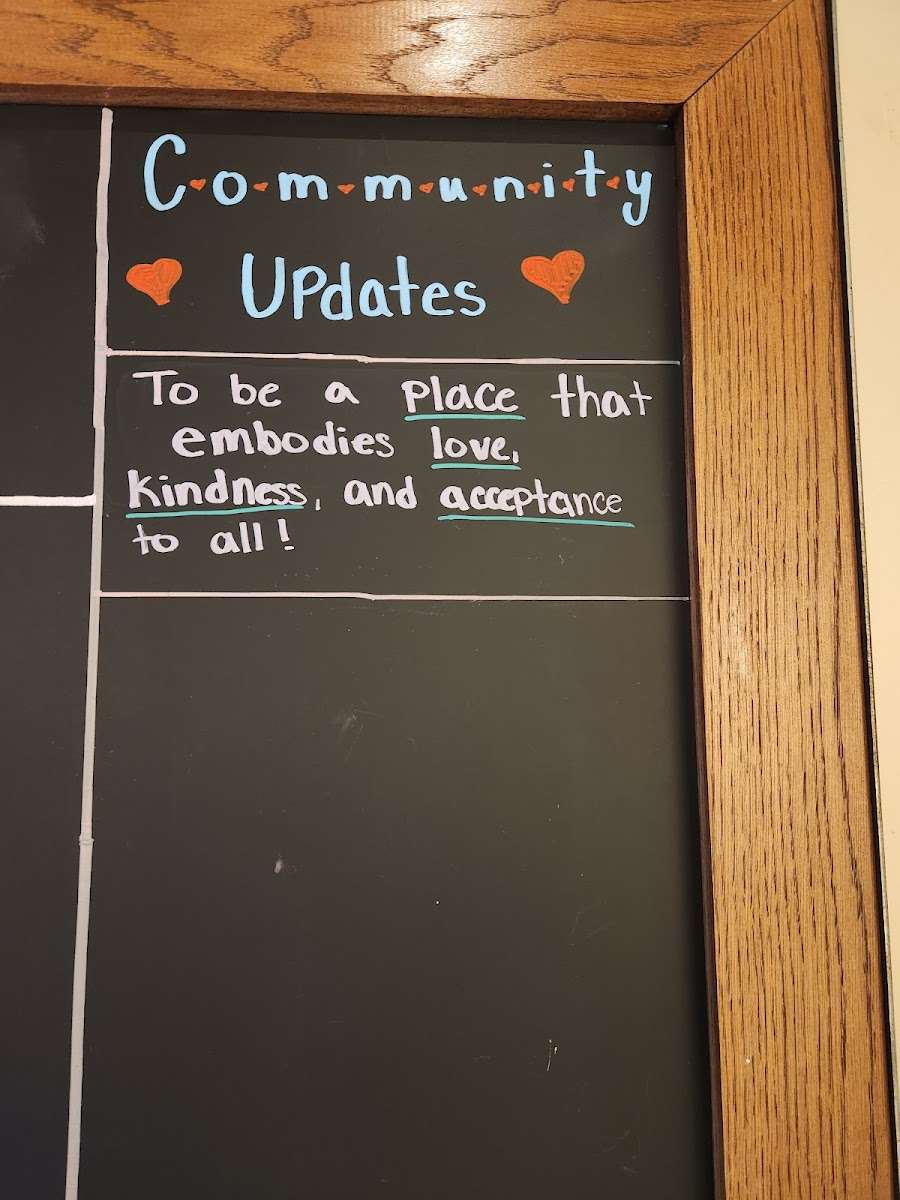 Community
Updates
To be a place that
embodies love,
kindness, and acceptance
to all!